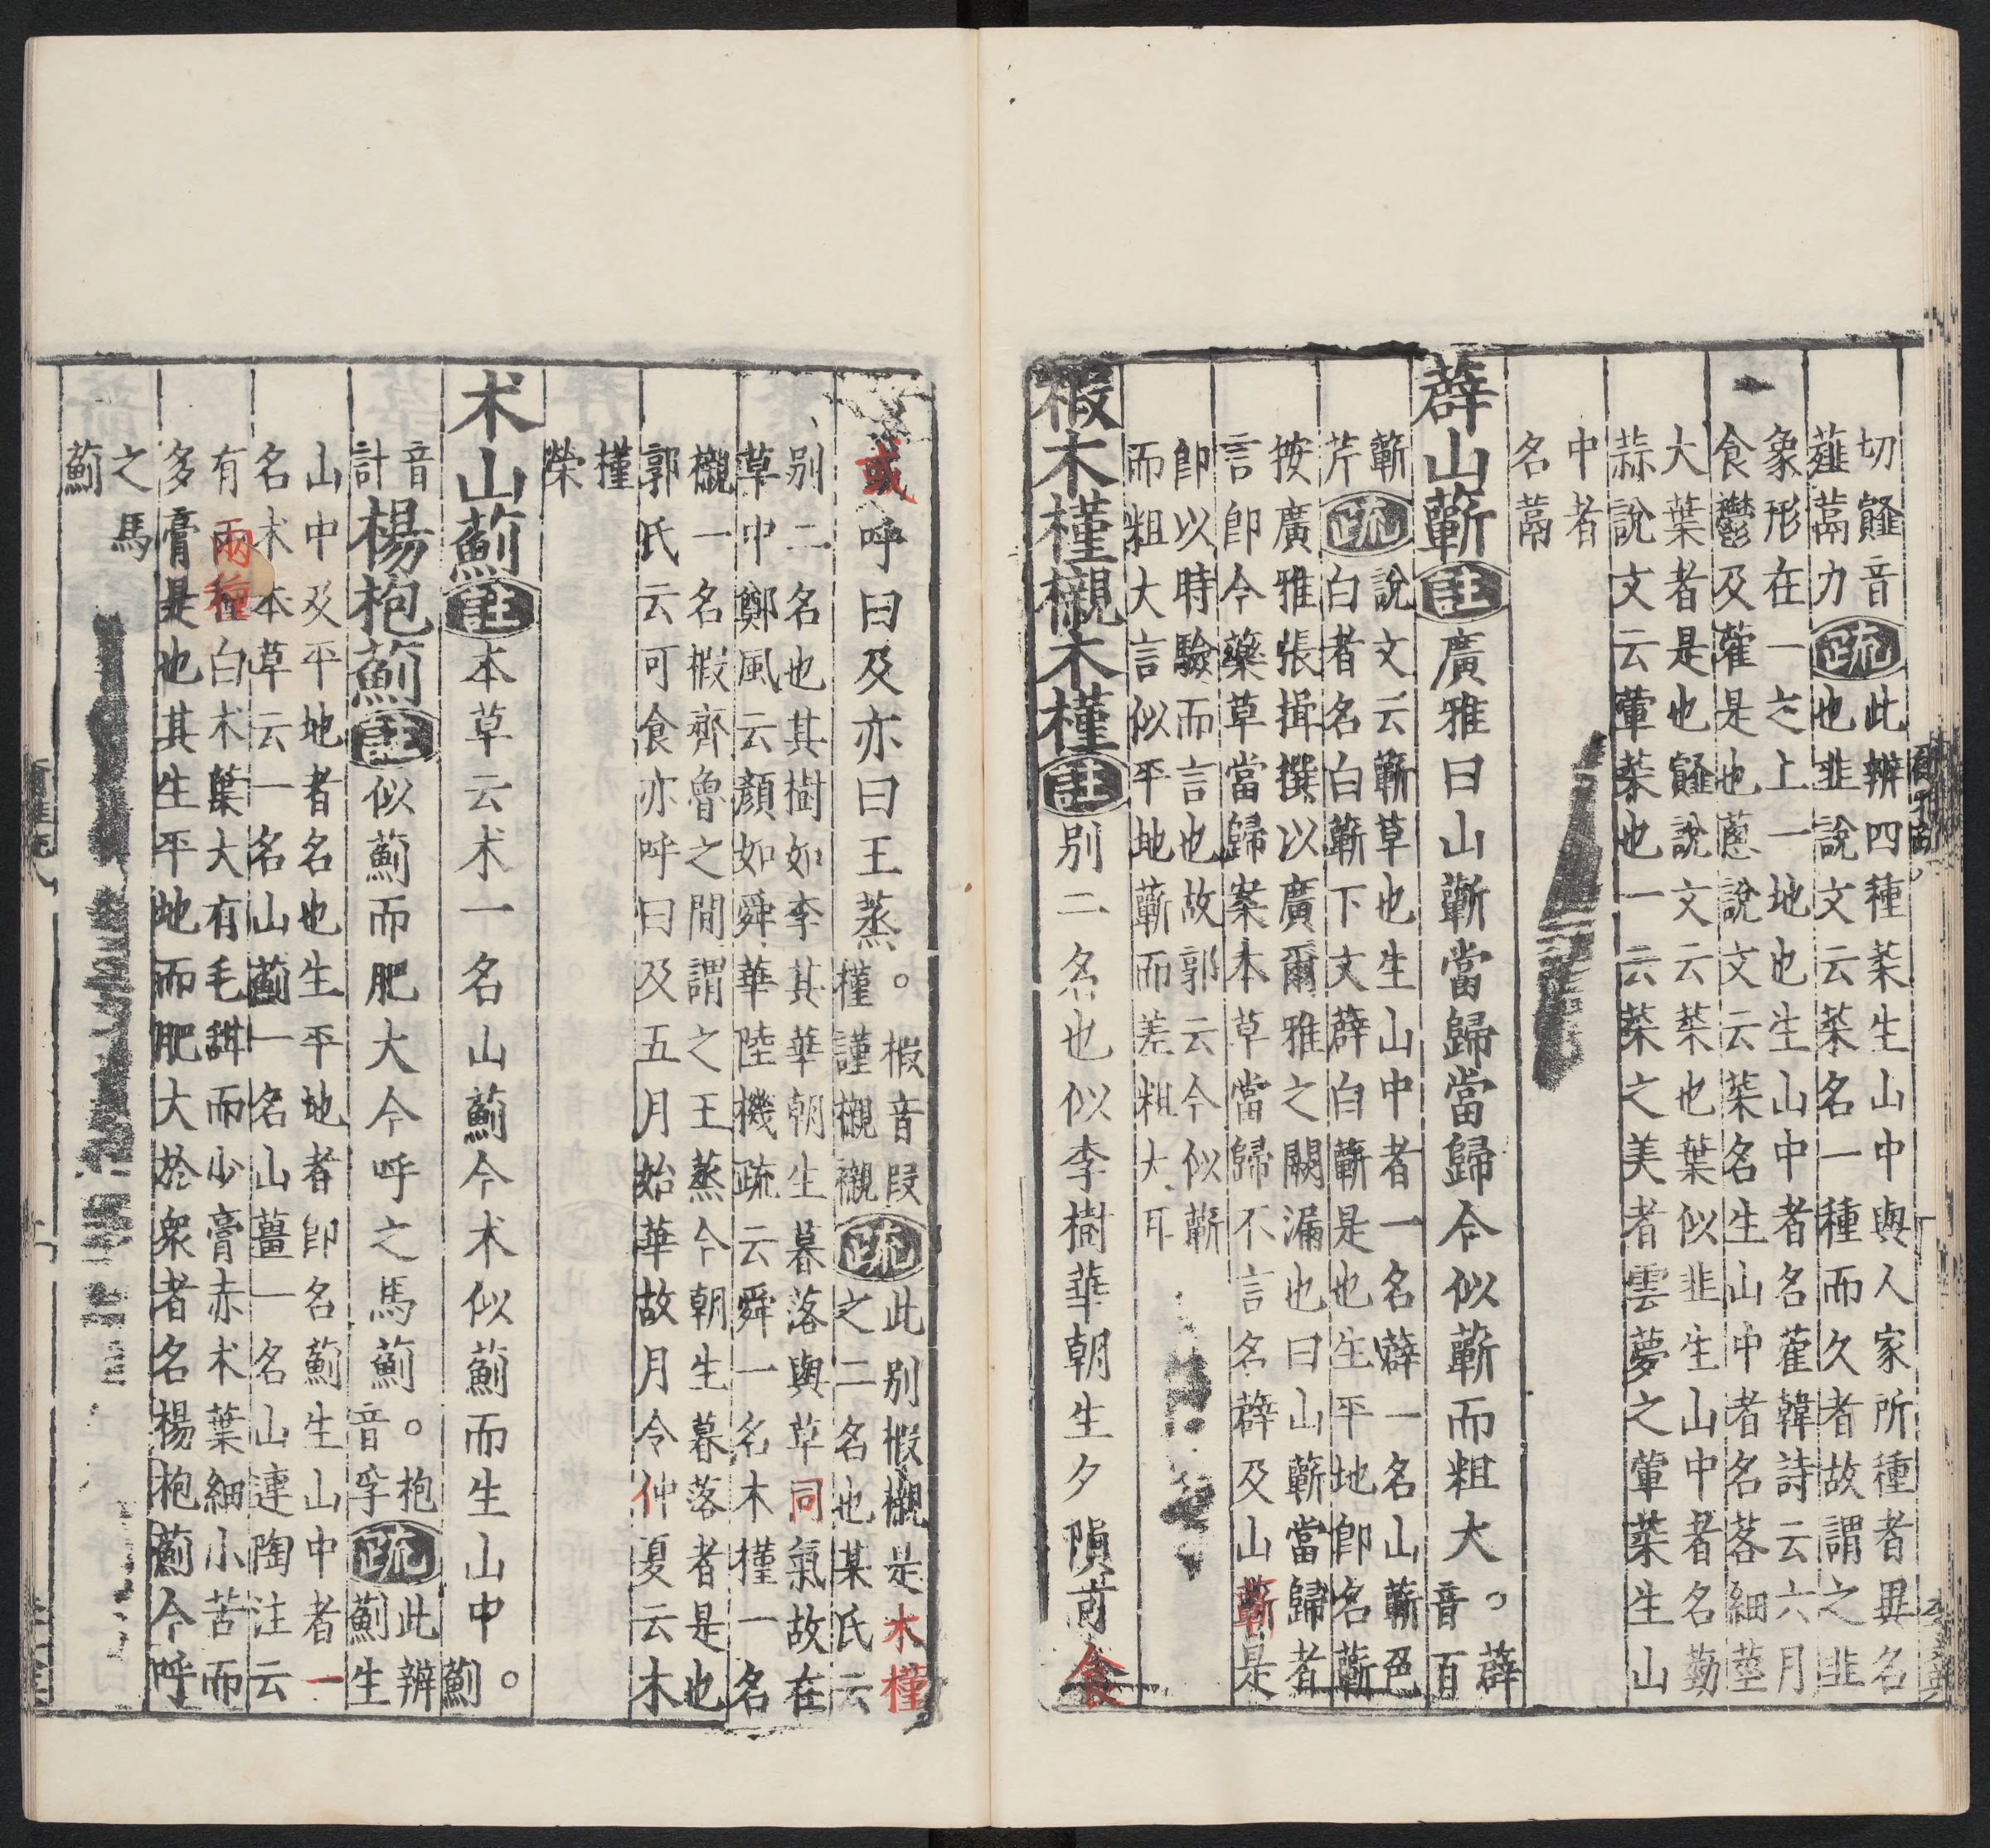 切䪥音㽅此辨四種菜生山中與人家所種者異名
薤蒚力疏也韭說文云菜名一種而久者故謂之韭
象形在一之上一地也生山中者名藿韓詩云六月
食鬱及藿是也蔥說文云菜名生山中者名茖細莖
大葉者是也䪥說文云菜也葉似韭生山中者名勤
蒜說文云葷菜也一云菜之美者雲夢之葷菜生山
中者
名蒚
薜山蘄註廣雅曰山蘄當歸當歸今似蘄而粗大。薜
音百
蘄說文云蘄草也生山中者一名薜一名山蘄邑
芹疏白者名白蘄下文薜白蘄是也生平地即名蘄
按廣雅張揖撰以廣爾雅之闕漏也曰山蘄當歸者
言即今藥草當歸案本草當歸不言名薜及山蘄是
即以時驗而言也故郭云今似蘄
而粗大言似平地蘄而差粗大耳
椵木槿櫬木槿註別二名也似李樹華朝生夕隕可食
或呼曰及亦曰王蒸。椵音叚
槿謹櫬襯疏此別椵櫬是木槿
之二名也某氏云
別二名也其樹如李其華朝生暮落與草同氣故在
草中鄭風云顏如舜華陸機疏云舜一名木槿一名
櫬一名椵齊魯之間謂之王蒸今朝生暮落者是也
郭氏云可食亦呼曰及五月始華故月令仲夏云木
槿
榮
术山薊註本草云术一名山薊今术似薊而生山中。薊
音
計
楊枹薊註似薊而肥大今呼之馬薊。枹
音孚疏此辨
薊生
山中及平地者名也生平地者即名薊生山中者一
名术本草云一名山薊一名山薑一名山連陶注云
有兩種白术葉大有毛甜而少膏赤术葉細小苦而
多膏是也其生平地而肥大於衆者名楊枹薊今呼
之馬
薊